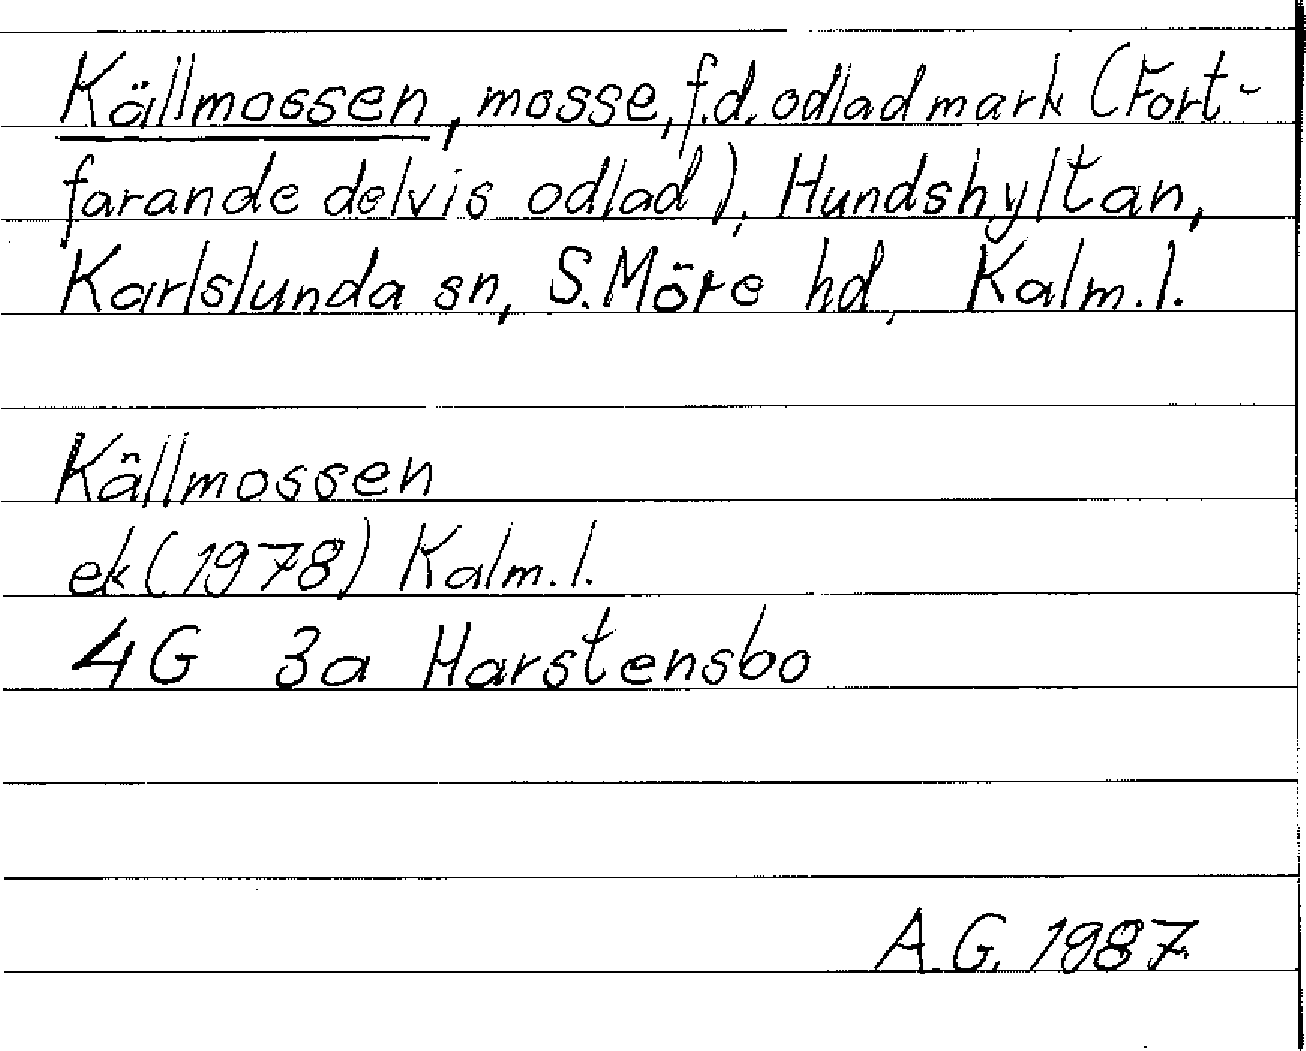 Källmossen, mosse, f.d. odlad mark (Fort-
farande delvis odlad), Hundshyltan,
Karlslunda sn, S. Möre hd, Kalm. l.
Källmossen
ek (1978) Kalm. l.
4G 3a Harstensbo
A.G. 1987